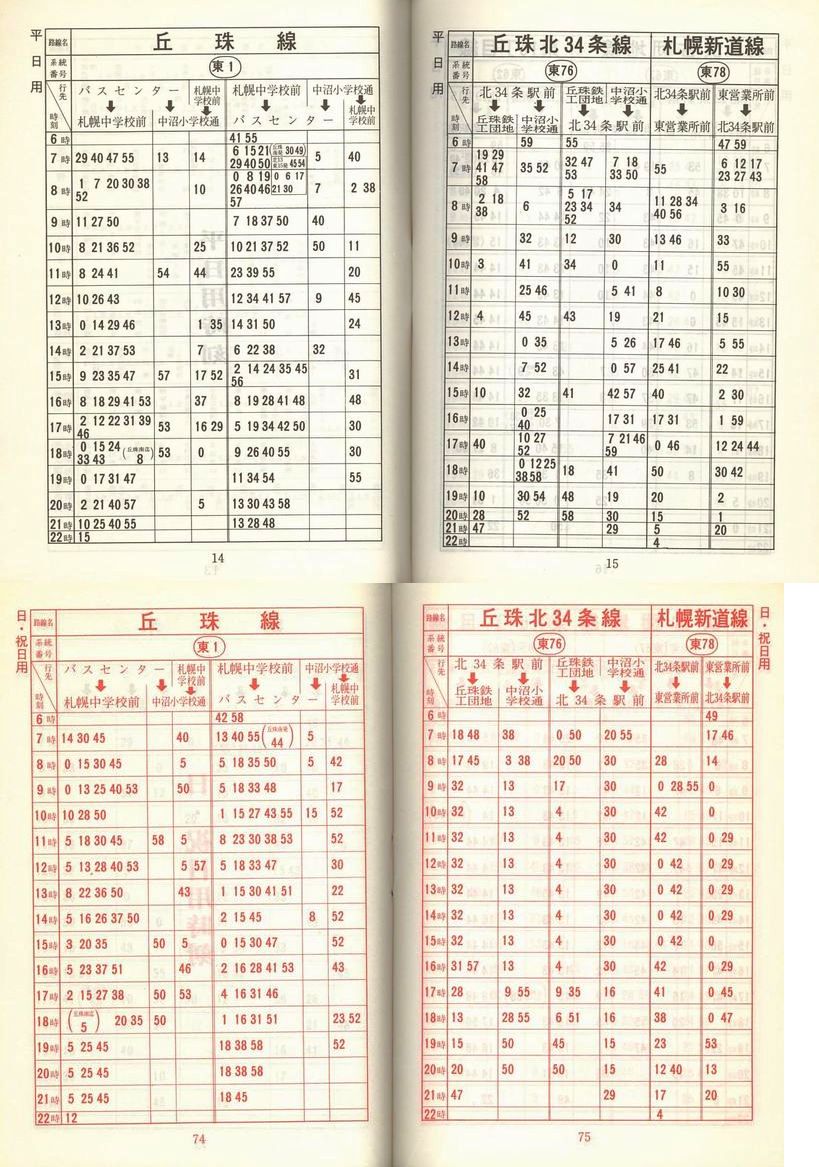 平日用
路線名 丘珠線
系統番号 東1
行先 時刻
バスセンター ↓ 札幌中学校前
札幌中学校前 ↓ 中沼小学校通
札幌中学校前 ↓ バスセンター
中沼小学校通 ↓ 札幌中学校前
6時 41 55
7時 29 40 47 55 13 14 6 15 21 30 49 29 40 50 45 54 5 40
8時 1 7 20 30 38 52 10 0 8 19 0 6 17 26 40 46 21 30 57 7 2 38
9時 11 27 50 7 18 37 50 40
10時 8 21 36 52 25 10 21 37 52 50 11
11時 8 24 41 54 44 23 39 55 20
12時 10 26 43 12 34 41 57 9 45
13時 0 14 29 46 1 35 14 31 50 24
14時 2 21 37 53 7 6 22 38 32
15時 9 23 35 47 57 17 52 2 14 24 35 45 56 31
16時 8 18 29 41 53 37 8 19 28 41 48 48
17時 2 12 22 31 39 46 53 16 29 5 19 34 42 50 30
18時 0 15 24 33 43 (丘珠南迄 8) 53 0 9 26 40 55 30
19時 0 17 31 47 11 34 54 55
20時 2 21 40 57 5 13 30 43 58
21時 10 25 40 55 13 28 48
22時 15
14
平日用
路線名 丘珠北34条線 札幌新道線
系統番号 東76 東78
行先 時刻
北34条駅前 ↓ 丘珠鉄工団地 中沼小学校通
丘珠鉄工団地 中沼小学校通 ↓ 北34条駅前
北34条駅前 ↓ 東営業所前
東営業所前 ↓ 北34条駅前
6時 59 55 47 59
7時 19 29 41 47 58 35 52 32 47 53 7 18 33 50 55 6 12 17 23 27 43
8時 2 18 38 6 5 17 23 34 52 34 11 28 34 40 56 3 16
9時 32 12 30 13 46 33
10時 3 41 34 0 11 55
11時 25 46 5 41 8 10 30
12時 4 45 43 19 21 15
13時 0 35 5 26 17 46 5 55
14時 7 52 0 57 25 41 22
15時 10 32 41 42 57 40 2 30
16時 0 25 40 17 31 17 31 1 59
17時 40 10 27 52 7 21 46 59 0 46 12 24 44
18時 0 12 25 38 58 18 41 50 30 42
19時 10 30 54 48 19 20 2
20時 28 52 58 30 15 1
21時 47 29 5 20
22時 4
15
日・祝日用
路線名 丘珠線
系統番号 東1
行先 時刻
バスセンター ↓ 札幌中学校前
札幌中学校前 ↓ 中沼小学校通
札幌中学校前 ↓ バスセンター
中沼小学校通 ↓ 札幌中学校前
6時 42 58
7時 14 30 45 40 13 40 55 (丘珠南発 44) 5
8時 0 15 30 45 5 5 18 35 50 5 42
9時 0 13 25 40 53 50 5 18 33 48 17
10時 10 28 50 1 15 27 43 55 15 52
11時 5 18 30 45 58 5 8 23 30 38 53 52
12時 5 13 28 40 53 5 57 5 18 33 47 30
13時 8 22 36 50 43 1 15 30 41 51 22
14時 5 16 26 37 50 2 15 45 8 52
15時 3 20 35 50 5 0 15 30 47 52
16時 5 23 37 51 46 2 16 28 41 53 43
17時 2 15 27 38 50 53 4 16 31 46
18時 (丘珠南迄 5) 20 35 50 1 16 31 51 23 52
19時 5 25 45 18 38 58 52
20時 5 25 45 18 38 58
21時 5 25 45 18 45
22時 12
74
日・祝日用
路線名 丘珠北34条線 札幌新道線
系統番号 東76 東78
行先 時刻
北34条駅前 ↓ 丘珠鉄工団地 中沼小学校通
丘珠鉄工団地 中沼小学校通 ↓ 北34条駅前
北34条駅前 ↓ 東営業所前
東営業所前 ↓ 北34条駅前
6時 49
7時 18 48 38 0 50 20 55 17 46
8時 17 45 3 38 20 50 30 28 14
9時 32 13 17 30 0 28 55 0
10時 32 13 4 30 42 0
11時 32 13 4 30 42 0 29
12時 32 13 4 30 0 42 0 29
13時 32 13 4 30 0 42 0 29
14時 32 13 4 30 0 42 0 29
15時 32 13 4 30 0 42 0
16時 31 57 13 4 30 42 0 29
17時 28 9 55 9 35 16 41 0 45
18時 13 28 55 6 51 16 38 0 47
19時 15 50 45 15 23 53
20時 20 50 50 15 12 40 13
21時 47 29 17 20
22時 4
75